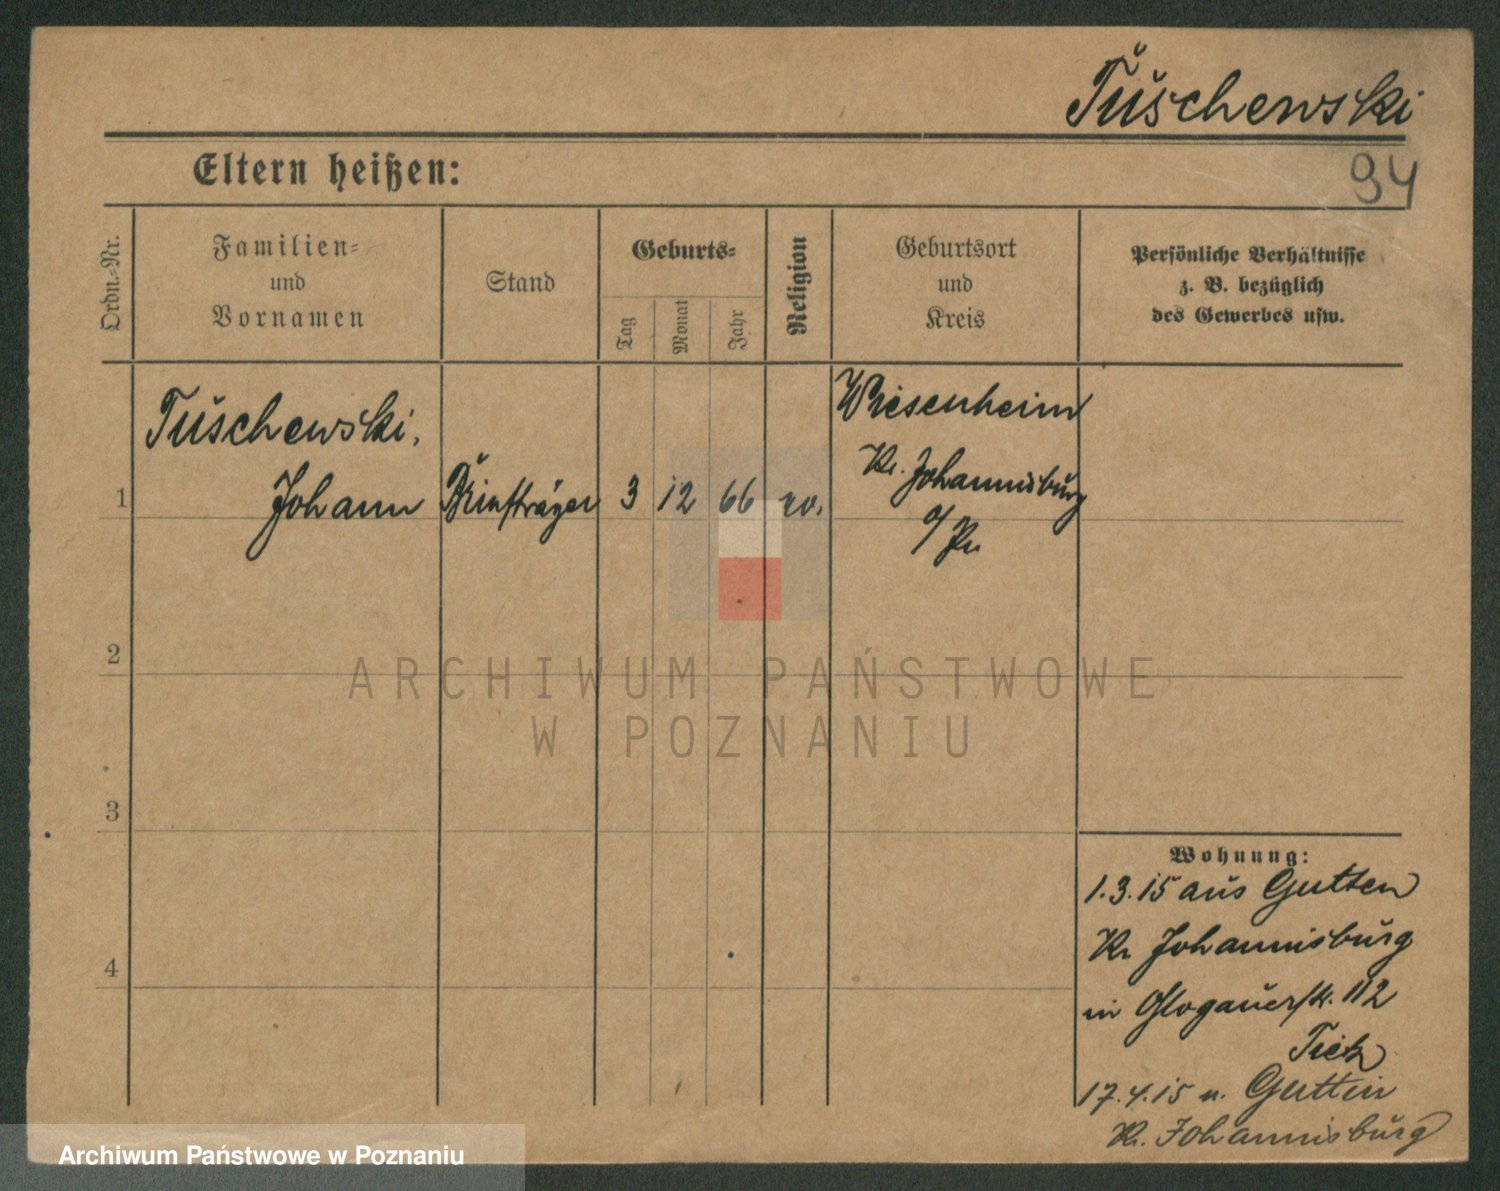 Tuschewski
94
Eltern heißen:
Ordn.-Nr.
Familien-
und
Vornamen
Stand
Geburts-
Tag
Monat
Jahr
Religion
Geburtsort
und
Kreis
Persönliche Verhältnisse
z. B. bezüglich
des Gewerbes usw.
1
Tuschewski,
Johann
Briefträger
3
12
66
ev.
Wiesenheim
Kr. Johannisburg
o/Pr
2
3
4
Wohnung:
1.3.15 aus Gutten
Kr Johannisburg
in Glogauerstr. 112
17.4.15 n. Gutten
Kr. Johannisburg
ARCHIWUM PAŃSTWOWE
W POZNANIU
Archiwum Państwowe w Poznaniu